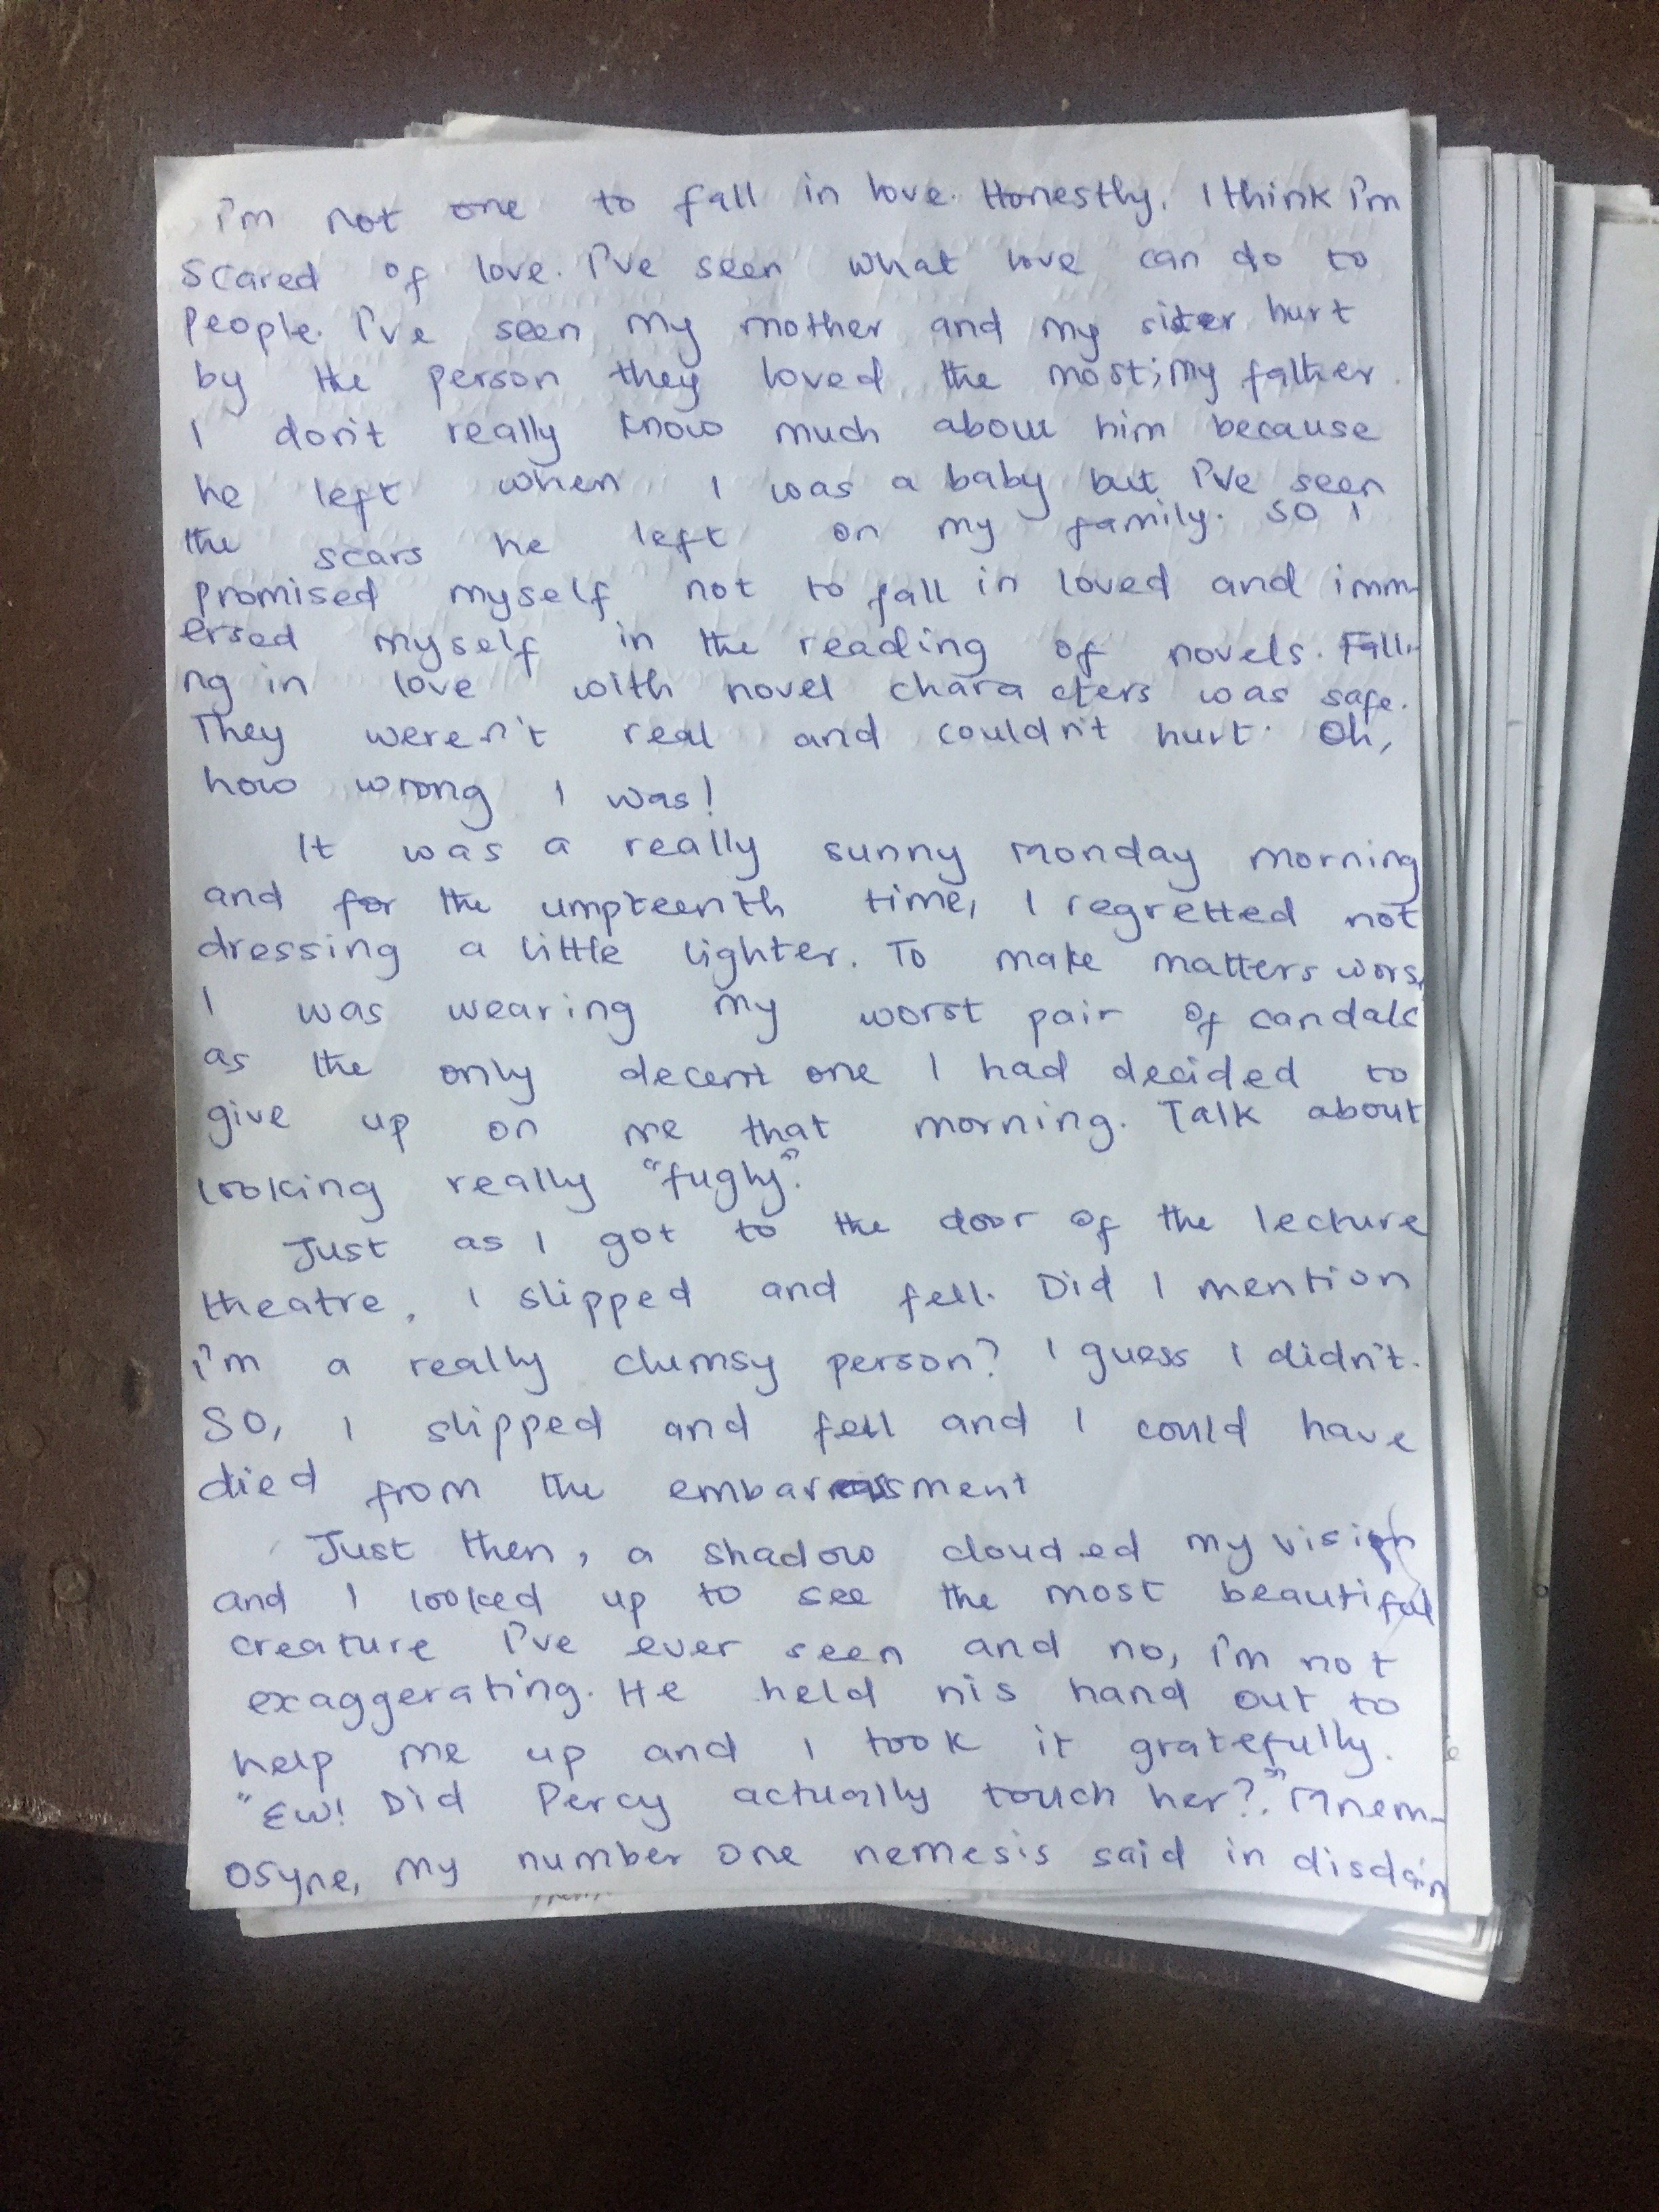 i'm not one to fall in love. Honestly, I think i'm
scared of love. I've seen what love can do to
people. I've seen my mother and my sister hurt
by the person they loved the most; my father.
I don't really know much about him because
he left when I was a baby but I've seen
the scars he left on my family. So I
promised myself not to fall in loved and imm-
ersed myself in the reading of novels. Falli-
ng in love with novel characters was safe.
They weren't real and couldn't hurt. Oh,
how wrong I was!
It was a really sunny Monday morning
and for the umpteenth time, I regretted not
dressing a little lighter. To make matters wors
I was wearing my worst pair of sandals
as the only decent one I had decided to
give up on me that morning. Talk about
looking really "fugly".
Just as I got to the door of the lecture
theatre, I slipped and fell. Did I mention
i'm a really clumsy person? I guess I didn't.
So, I slipped and fell and I could have
died from the embarrassment
Just then, a shadow clouded my vision
and I looked up to see the most beautiful
creature I've ever seen and no, i'm not
exaggerating. He held his hand out to
help me up and I took it gratefully.
"Ew! Did Percy actually touch her?." Mnem-
osyne, my number one nemesis said in disdain